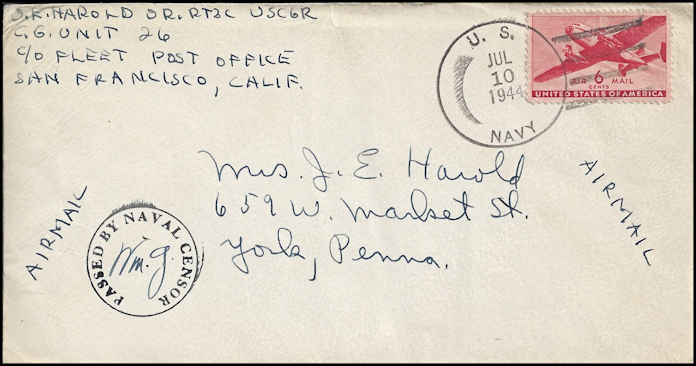 J.E. HAROLD JR. RT3C USCGR
C.G. UNIT 26
C/O FLEET POST OFFICE
SAN FRANCISCO, CALIF.
U. S.
JUL
10
1944
NAVY
AIR 6 MAIL
CENTS
UNITED STATES OF AMERICA
Mrs. J. E. Harold
659 W. Market St.
York, Penna.
AIRMAIL
AIRMAIL
PASSED BY NAVAL CENSOR
Wm. G.